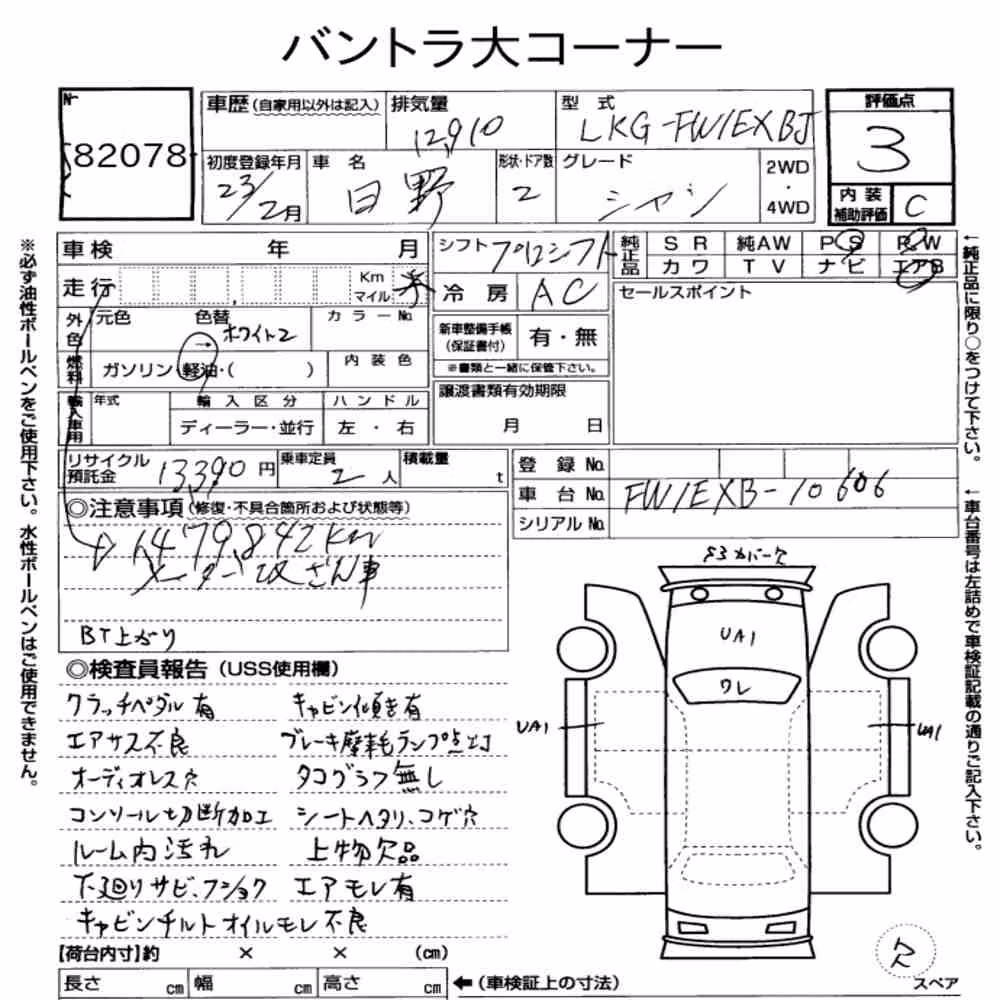 バントラ大コーナー
82078
車歴(自家用以外は記入)
排気量
12,910
型式
LKG-FW1EXBJ
評価点
3
内装
補助評価
C
初度登録年月
23/2月
車名
日野
形状・ドア数
2
グレード
シャシ
2WD
・
4WD
車検 年 月
シフト
プロシフト
純正品
SR 純AW PS PW
カワ TV ナビ エアB
走行
Km
マイル
冷房
AC
セールスポイント
外色
元色 色替
→ ホワイト2
カラーNo.
新車整備手帳
(保証書付)
有・無
※書類と一緒に保管下さい。
燃料
ガソリン・軽油・( )
内装色
譲渡書類有効期限
月 日
輸入車用
年式
輸入区分
ハンドル
ディーラー・並行
左・右
リサイクル
預託金
13,390円
乗車定員
2人
積載量
t
登録No.
車台No.
FW1EXB-10606
シリアルNo.
◎注意事項(修復・不具合箇所および状態等)
1,479,842km
メーター改ざん車
BT上がり
◎検査員報告(USS使用欄)
クラッチペダル有 キャビン傾き有
エアサス不良 ブレーキ摩耗ランプ点灯
オーディオレス穴 タコグラフ無し
コンソール切断加工 シートヘタリ、コゲ穴
ルーム内汚れ 上物欠品
下廻りサビ、フショク エアモレ有
キャビンチルトオイルモレ不良
【荷台内寸】約 × × (cm)
長さ cm 幅 cm 高さ cm
←(車検証上の寸法)
UA1
ワレ
UA1
UA1
スペア
※必ず油性ボールペンをご使用下さい。水性ボールペンはご使用できません。
←純正品に限り○をつけて下さい。
←車台番号は左詰めで車検証記載の通りご記入下さい。